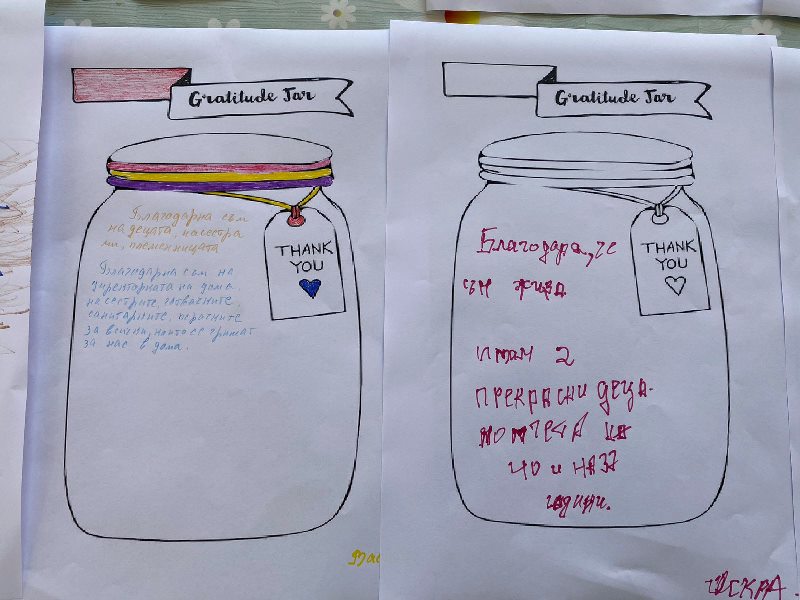 Gratitude Jar
THANK
YOU
Благодарна съм
на децата, на сестра
ми, племенницата
Благодарна съм на
директорката на дома
на сестрите, готвачките,
санитарките, перачките
за всички, които се грижат
за нас в дома.
Gratitude Jar
THANK
YOU
Благодаря, че
съм жива
имам 2
ПРЕКРАСНИ ДЕЦА.
МОМЧЕТА НА
40 и НА 37
години.
ИСКРА.